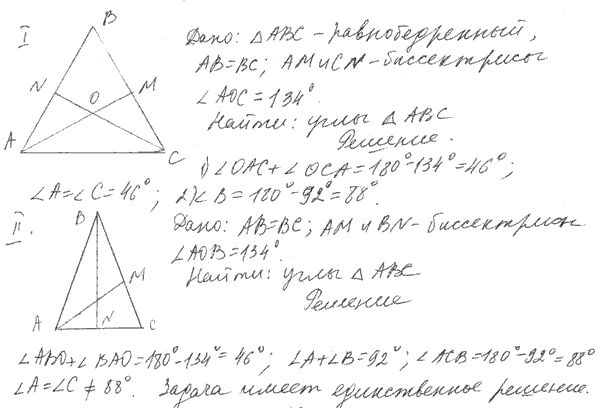 I
B
N
M
O
A
C
Дано: △ABC - равнобедренный,
AB=BC; AM и CN - биссектрисы
∠AOC = 134°.
Найти: углы △ABC
Решение.
1) ∠OAC+∠OCA=180°-134°=46°;
∠A=∠C=46°; 2) ∠B=180°-92°=88°.
II.
B
M
A
N
C
Дано: AB=BC; AM и BN - биссектрисы
∠AOB=134°.
Найти: углы △ABC
Решение
∠ABO+∠BAO=180°-134°=46°; ∠A+∠B=92°; ∠ACB=180°-92°=88°
∠A=∠C≠88°. Задача имеет единственное решение.